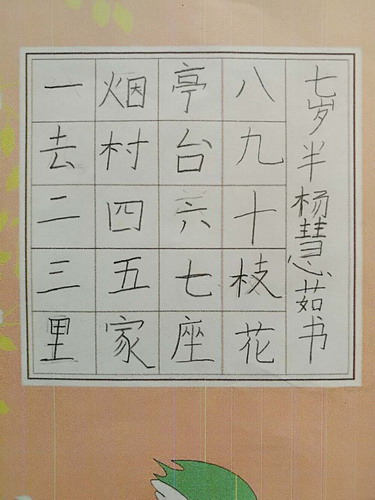 一去二三里
烟村四五家
亭台六七座
八九十枝花
七岁半杨慧茹书